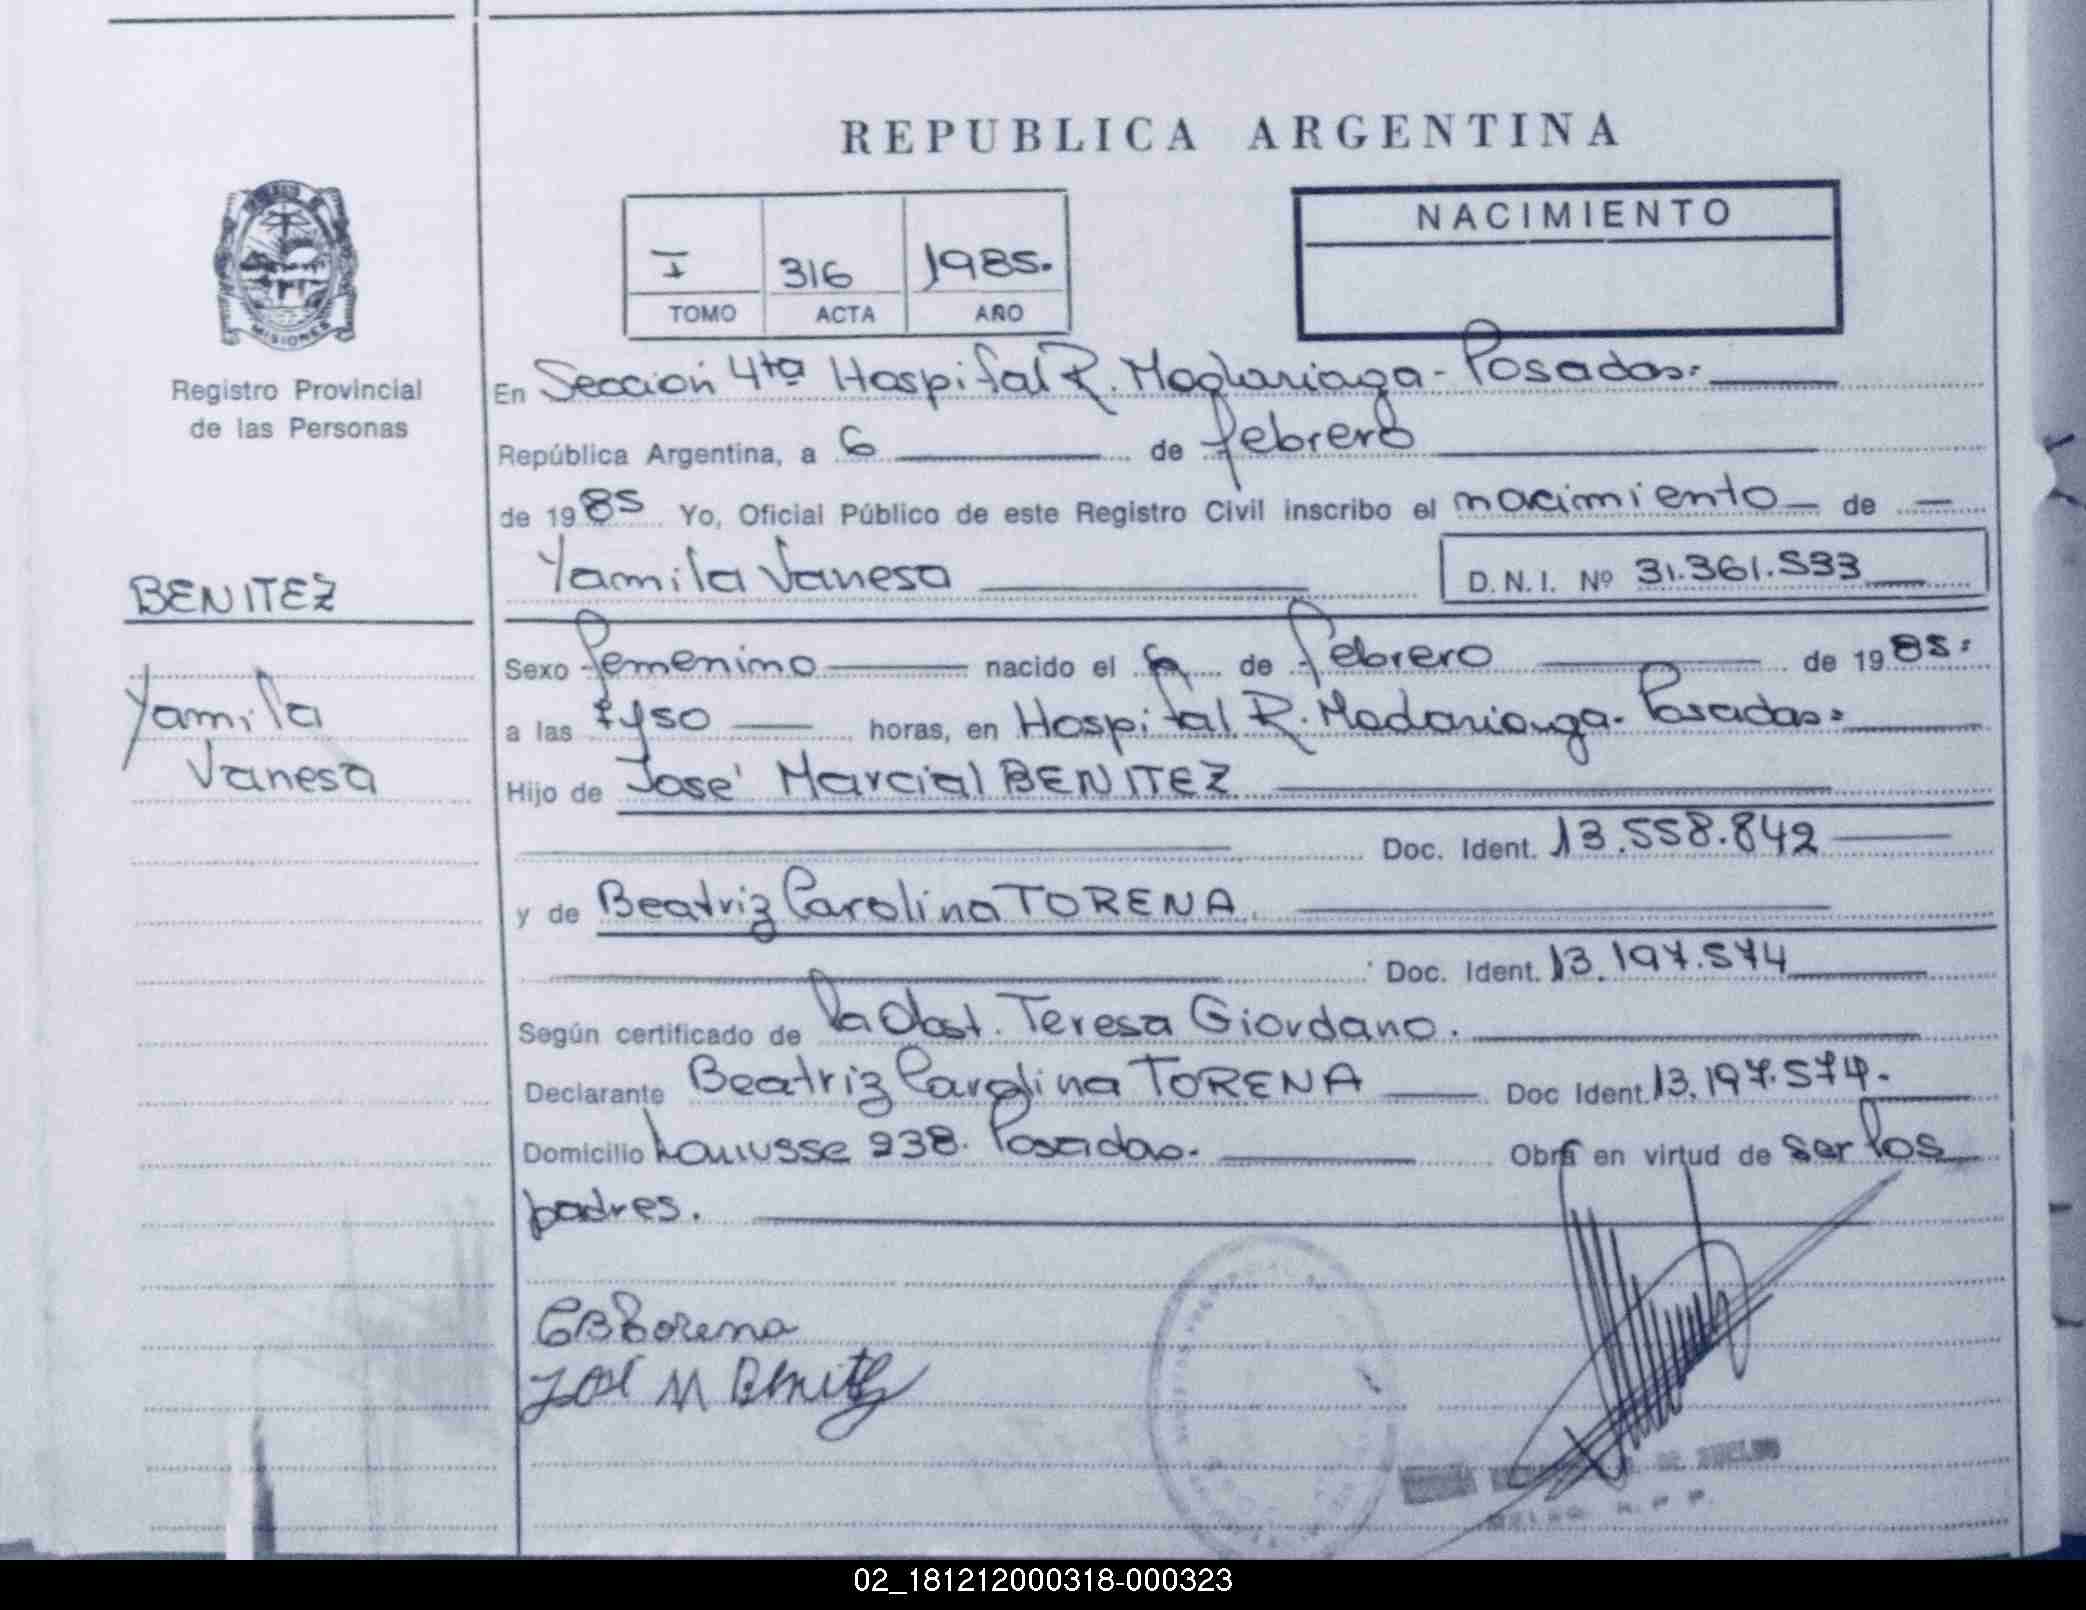 REPUBLICA ARGENTINA
NACIMIENTO
I 316 1985.
TOMO ACTA AÑO
MISIONES
Registro Provincial
de las Personas
En Sección 4ta Hospital R. Madariaga - Posadas.
República Argentina, a 6 de febrero
de 1985 Yo, Oficial Público de este Registro Civil inscribo el nacimiento de
Yamila Vanesa D.N.I. Nº 31.361.533
BENITEZ
Yamila
Vanesa
Sexo femenino nacido el 6 de febrero de 1985.
a las 7y50 horas, en Hospital R. Madariaga - Posadas.
Hijo de José Marcial BENITEZ
Doc. Ident. 13.558.842
y de Beatriz Carolina TORENA
Doc. Ident. 13.197.574
Según certificado de la Obst. Teresa Giordano.
Declarante Beatriz Carolina TORENA Doc Ident. 13.197.574.
Domicilio Lanusse 238. Posadas. Obra en virtud de ser los
padres.
CBTorena
José M Benitez
R. P. P.
02_181212000318-000323